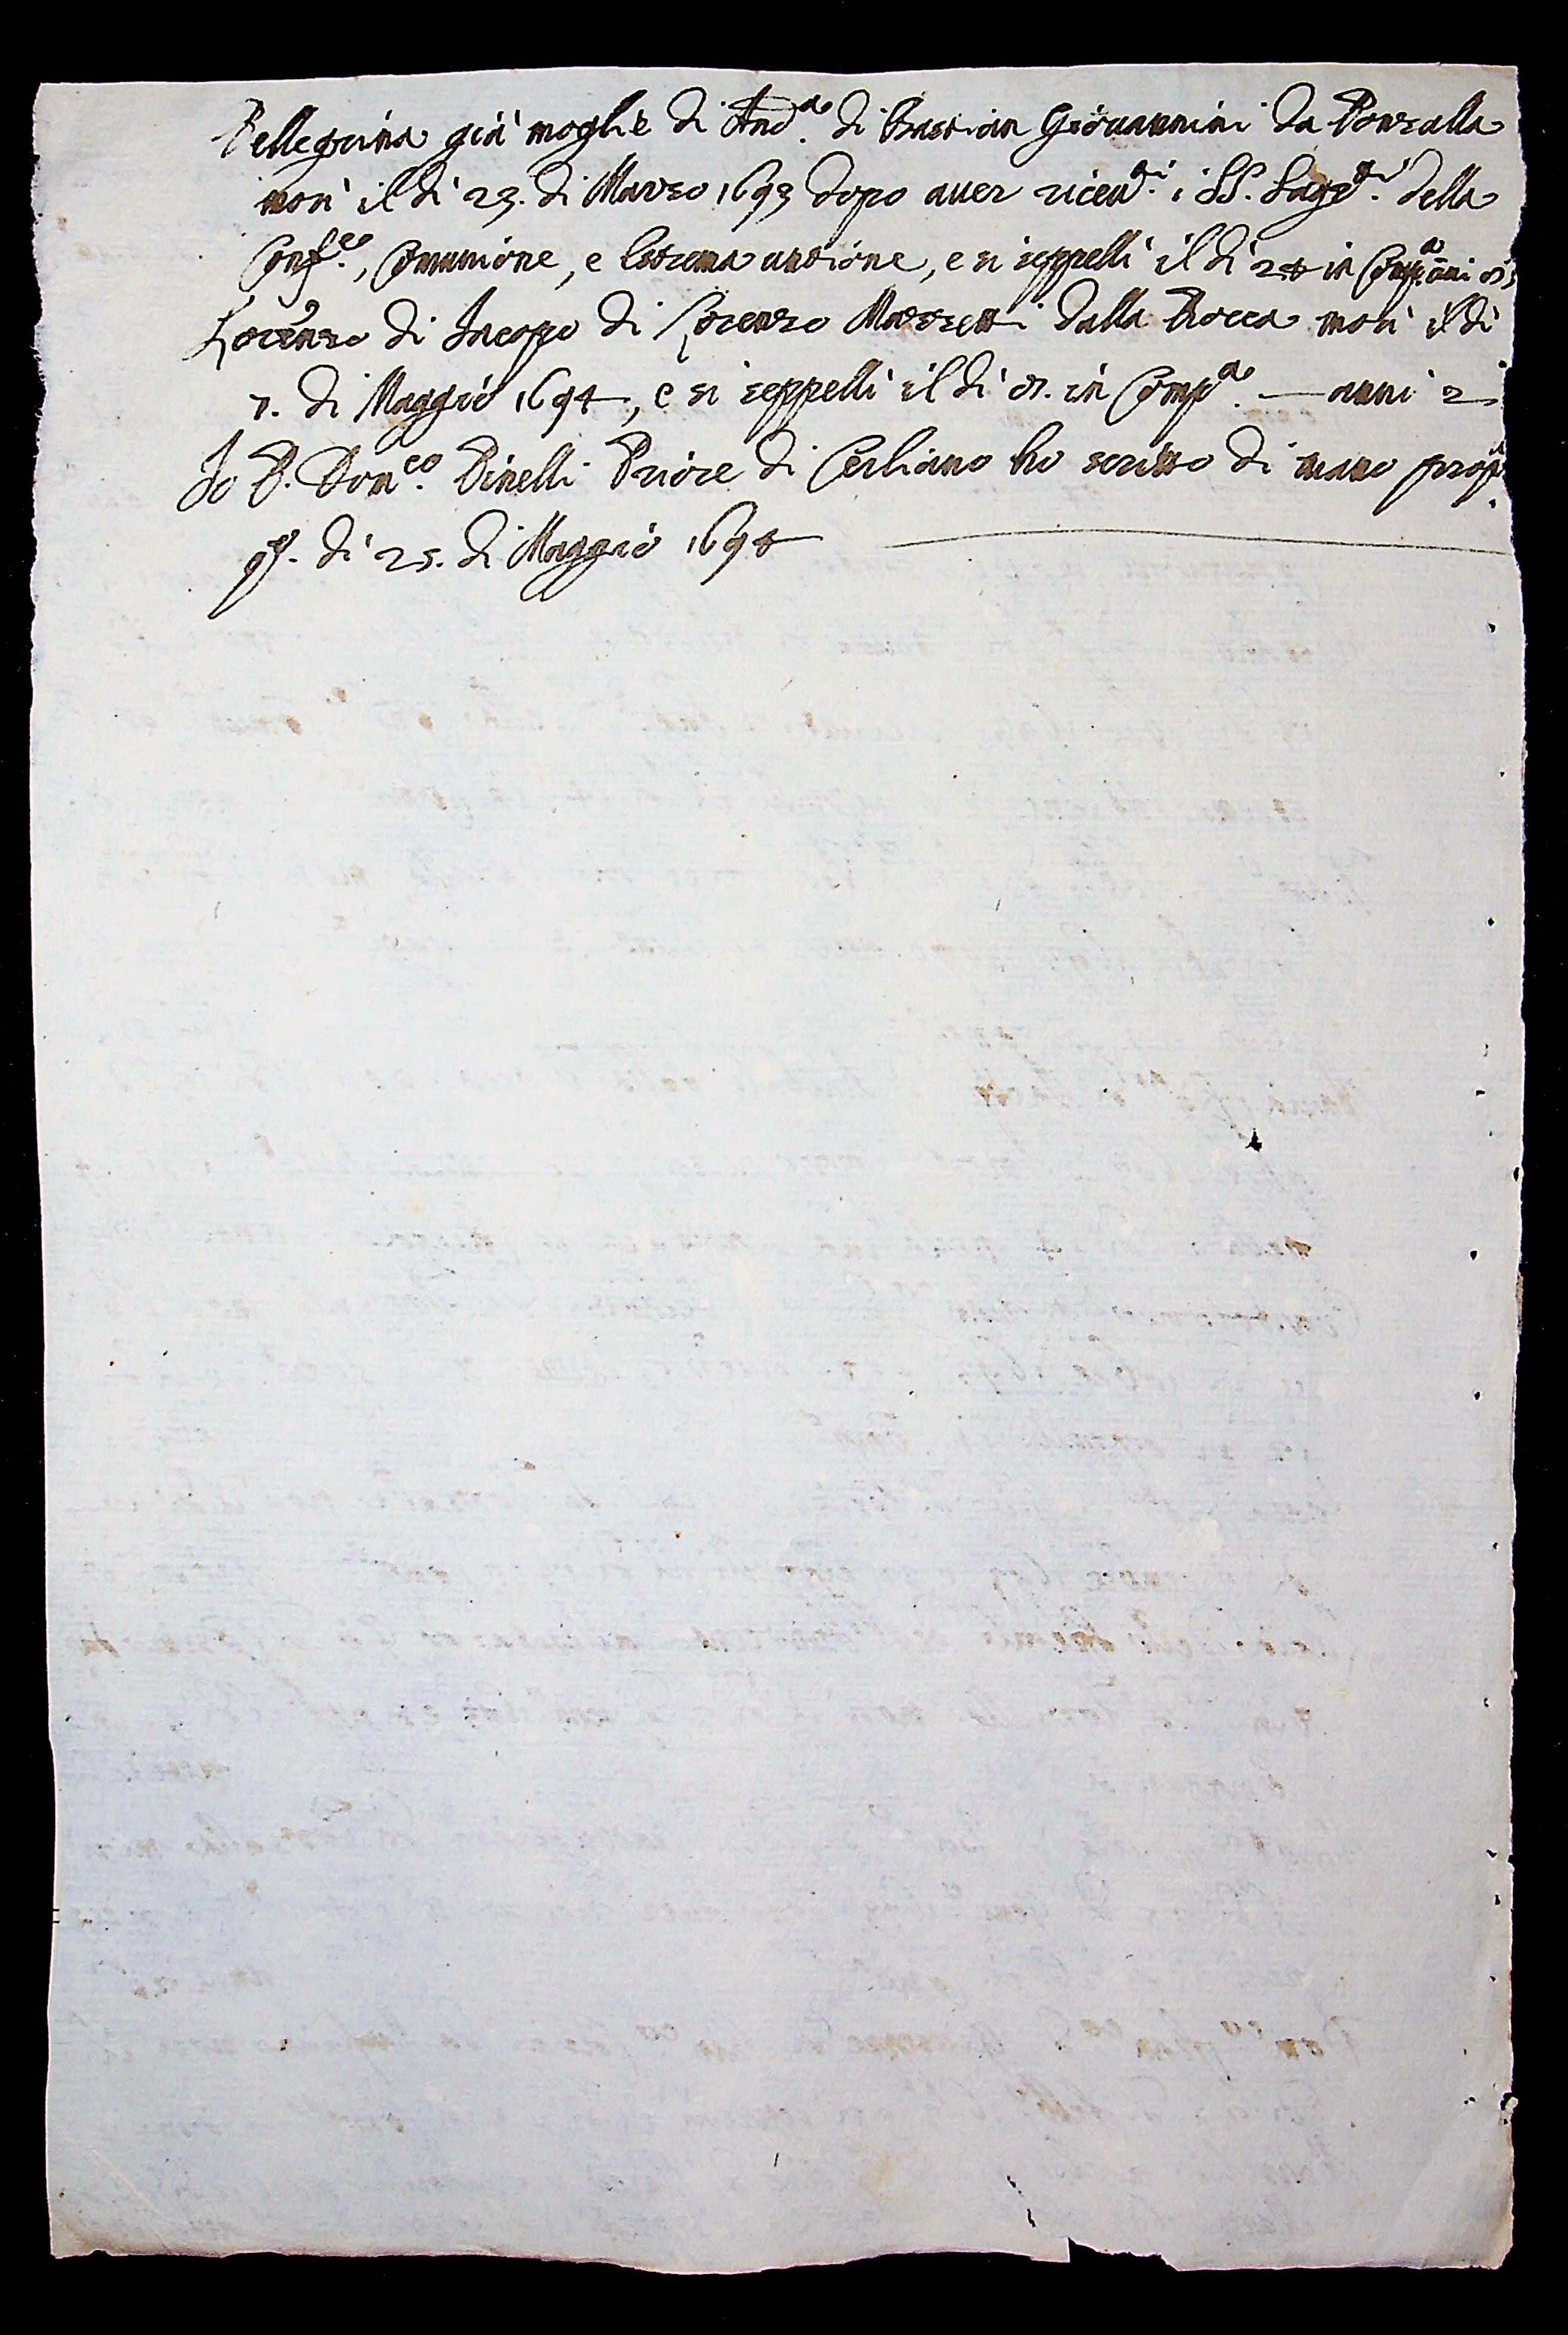 Pellegrina già moglie di And.ª di Bastian Giovannini da Ponzalla
morì il dì 23. di Marzo 1693 dopo aver ricevti i SS. Sagti. della
Conf.e, Comunione, e Estrema unzione, e si seppellì il dì 24 in Comp.ª anni
Lorenzo di Jacopo di Lorenzo Mazzetti dalla Rocca morì il dì
7. di Maggio 1694, e si seppellì il dì 8. in Comp.ª — anni 2
Io P. Dom.co Pinelli Priore di Cerliano ho scritto di mano prop.ª
q.º dì 25. di Maggio 1694